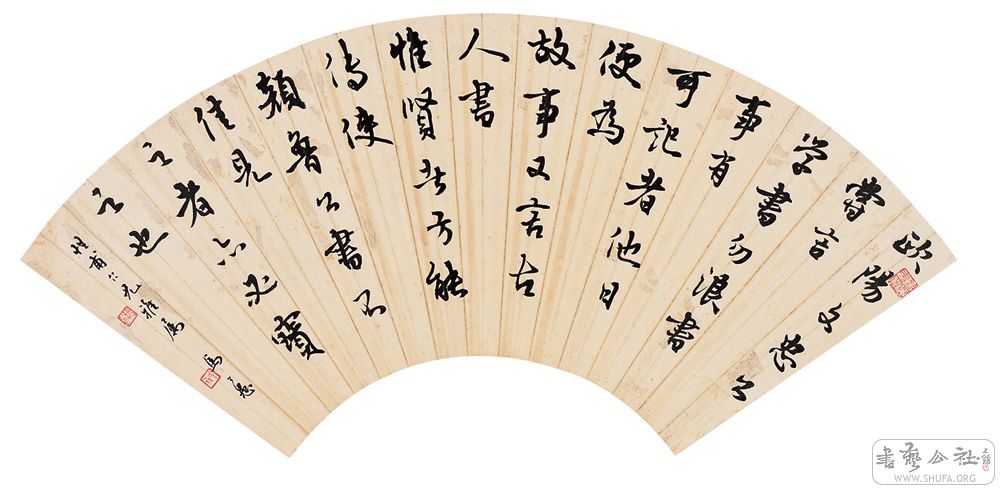 歐陽文忠公
嘗言
學書勿浪書
事有
可記者他日
便為
故事又言古
人書
惟賢者方能
傳使
顏魯公書不
佳見
之者亦必寶
之也
甫仁兄雅屬 馬公愚
書藝公社
WWW.SHUFA.ORG